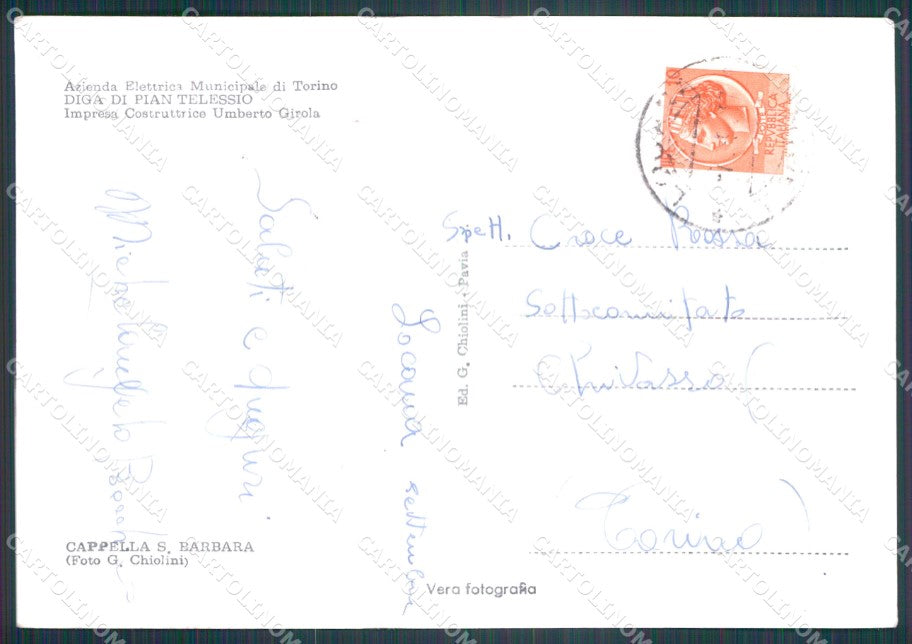 Azienda Elettrica Municipale di Torino
DIGA DI PIAN TELESSIO
Impresa Costruttrice Umberto Girola
Saluti e Auguri
Locana settembre
Spett. Croce Rossa
Sottocomitato
Chivasso
(Torino)
Ed. G. Chiolini - Pavia
REPVBBLICA
ITALIANA
CAPPELLA S. BARBARA
(Foto G. Chiolini)
Vera fotografia
CARTOLINOMANIA